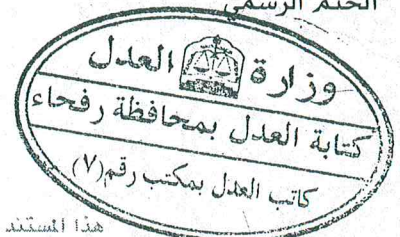 الختم الرسمي
وزارة العدل
كتابة العدل بمحافظة رفحاء
كاتب العدل بمكتب رقم (٧)
هذا المستند